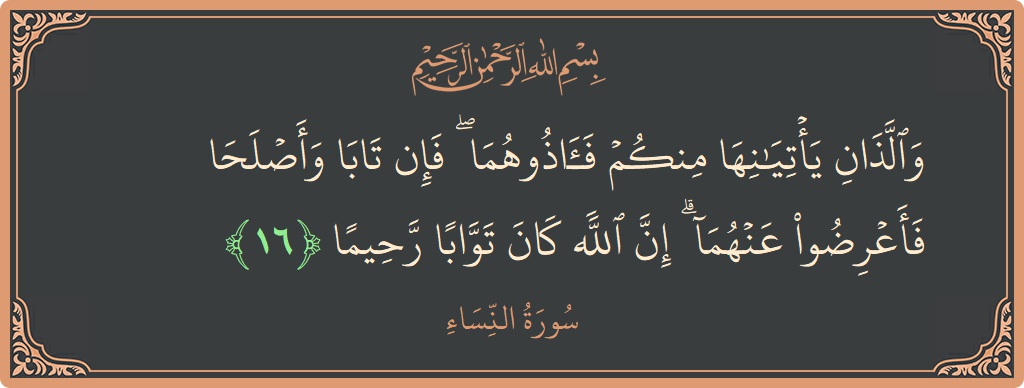 بِسْمِ اللهِ الرَّحْمٰنِ الرَّحِيْمِ
وَٱلَّذَانِ يَأۡتِيَٰنِهَا مِنكُمۡ فَـَٔاذُوهُمَاۖ فَإِن تَابَا وَأَصۡلَحَا
فَأَعۡرِضُواْ عَنۡهُمَآۗ إِنَّ ٱللَّهَ كَانَ تَوَّابٗا رَّحِيمًا ﴿١٦﴾
سُورَةُ النِّسَاءِ